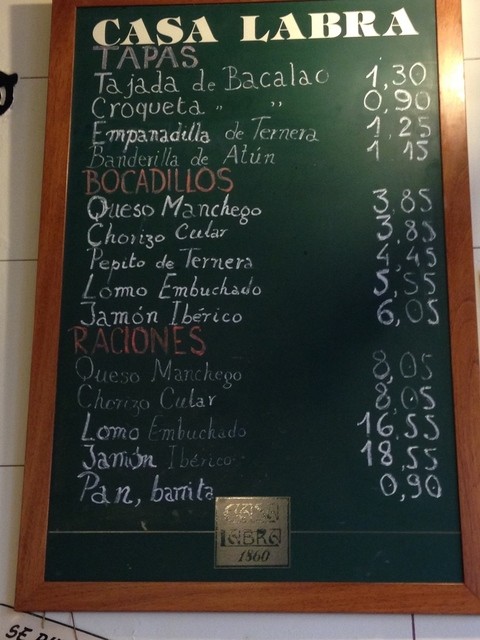 CASA LABRA
TAPAS
Tajada de Bacalao 1,30
Croqueta " " 0,90
Empanadilla de Ternera 1,25
Banderilla de Atún 1 15
BOCADILLOS
Queso Manchego 3,85
Chorizo Cular 3,85
Pepito de Ternera 4,45
Lomo Embuchado 5,55
Jamón Ibérico 6,05
RACIONES
Queso Manchego 8,05
Chorizo Cular 8,05
Lomo Embuchado 16,55
Jamón Ibérico 18,55
Pan, barrita 0,90
CASA
LABRA
1860